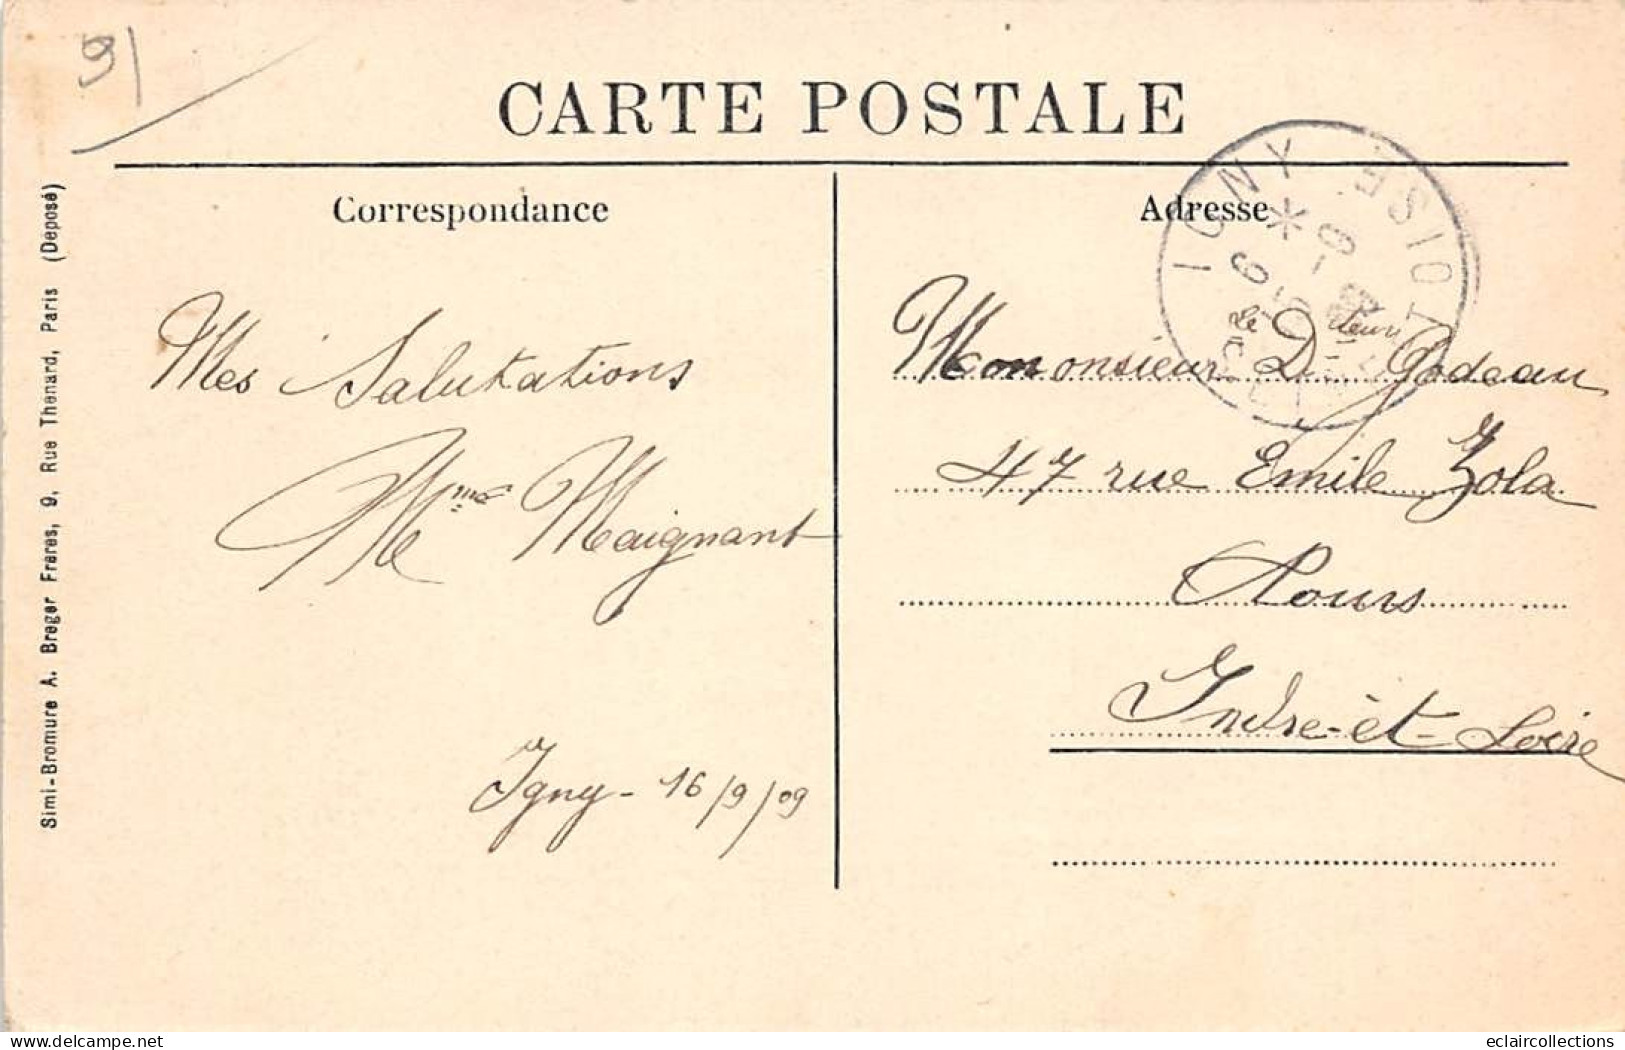 91
CARTE POSTALE
Correspondance
Adresse
IGNY
Mes Salutations
Mme Maignant
Igny - 16/9/09
Mononsieur le Dteur Godeau
47 rue Emile Zola
Tours
Indre-et-Loire
Simi-Bromure A. Breger Frères, 9, Rue Thenard, Paris (Deposé)
delcampe.net
eclaircollections